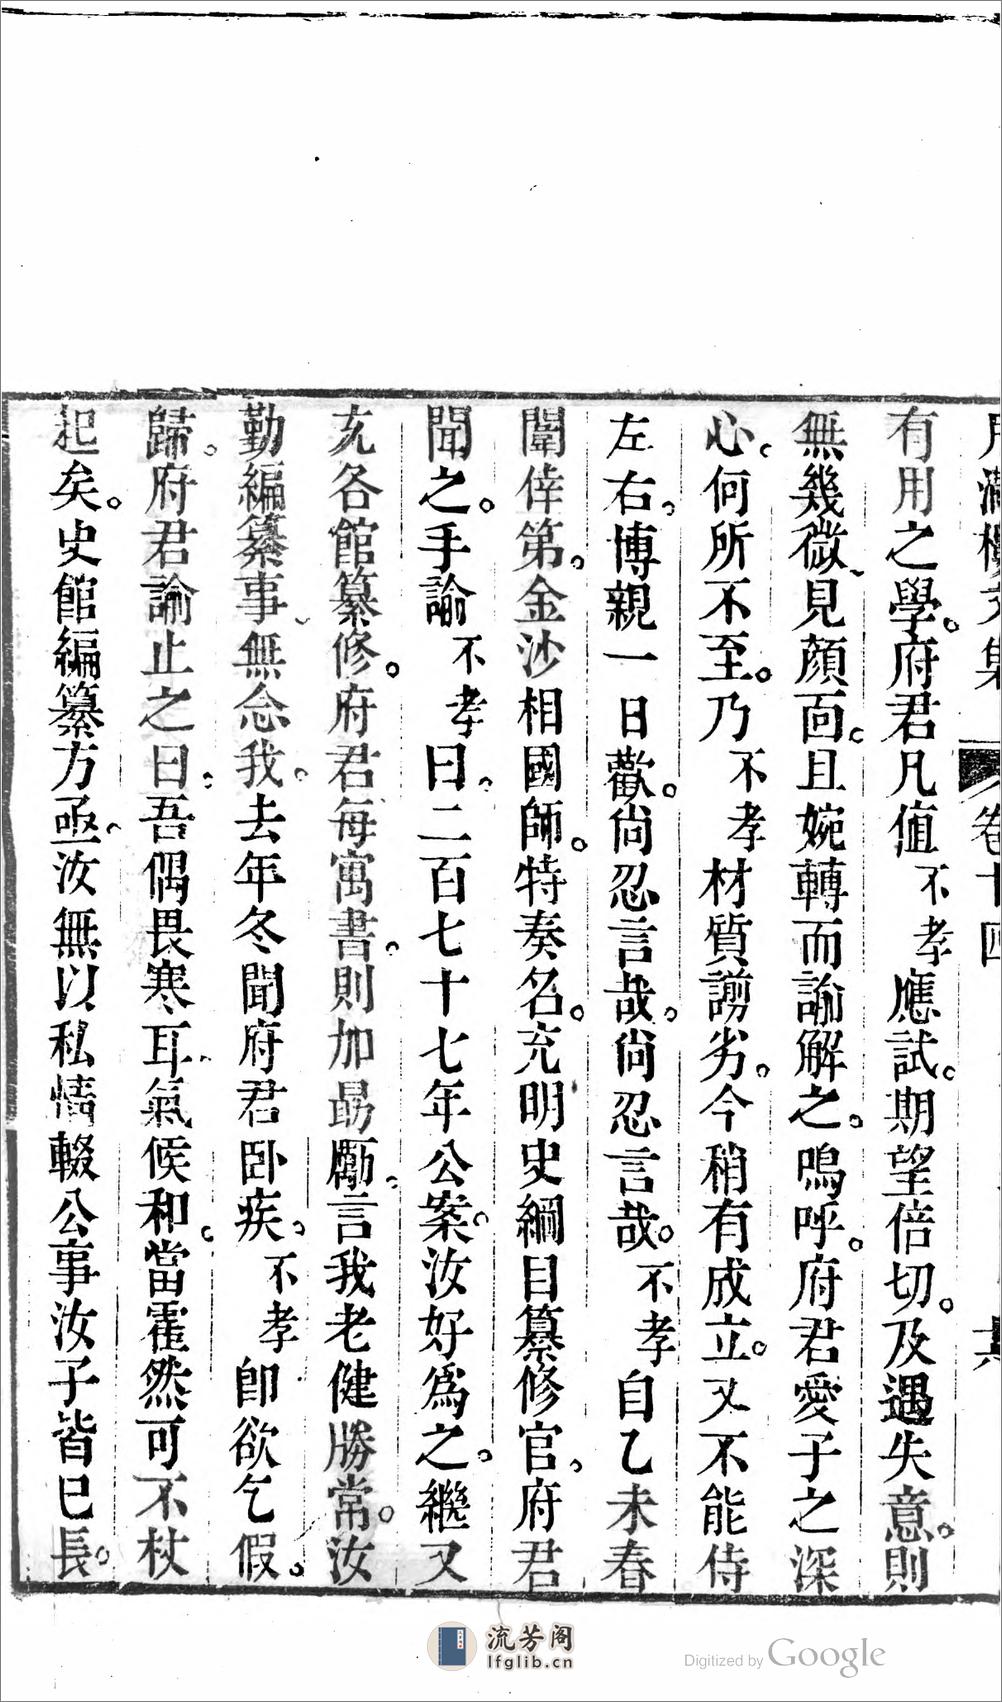 有用之學。府君凡值不孝應試。期望倍切。及遇失意。則
無幾微見顏面。且婉轉而諭解之。嗚呼。府君愛子之深
心。何所不至。乃不孝材質譾劣。今稍有成立。又不能侍
左右。博親一日歡。尚忍言哉。尚忍言哉。不孝自乙未春
闈倖第。金沙相國師。特奏名。充明史綱目纂修官。府君
聞之。手諭不孝曰。二百七十七年公案。汝好爲之。繼又
充各館纂修。府君每寓書。則加勗勵。言我老健勝常。汝
勤編纂事、無念我。去年冬聞府君臥疾。不孝卽欲乞假。
歸。府君諭止之曰。吾偶畏寒耳。氣候和。當霍然可不杖
起矣。史館編纂方亟。汝無以私情輟公事汝子皆已長。
卷十四
流芳阁
lfglib.cn
Digitized by Google